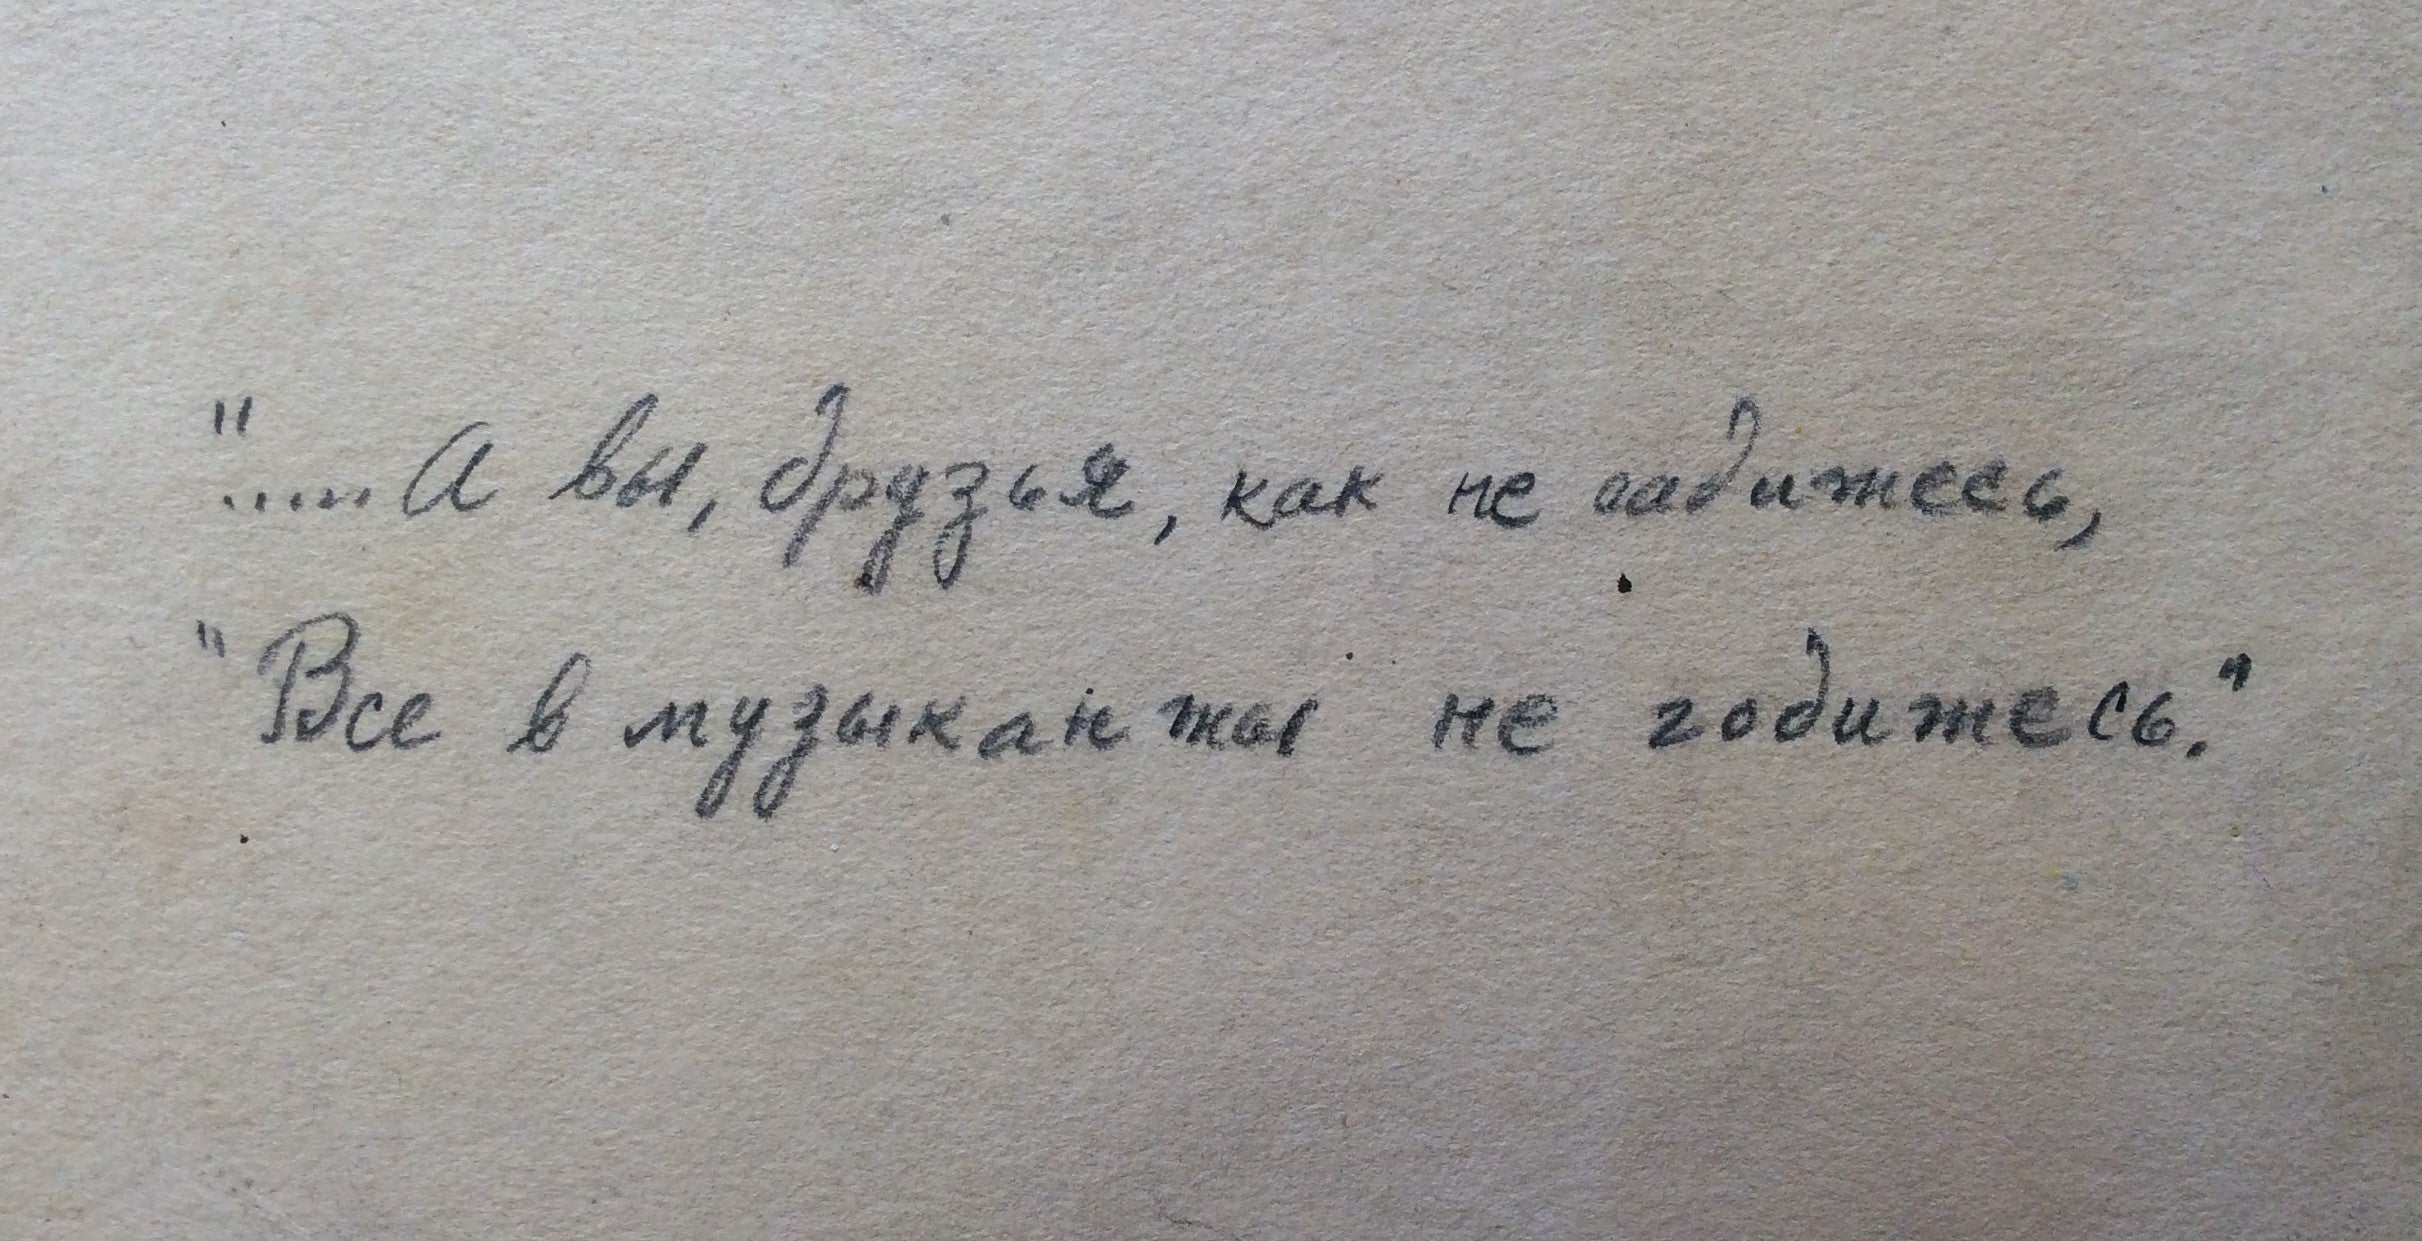 "..... А вы, друзья, как не садитесь,
"Все в музыканты не годитесь."